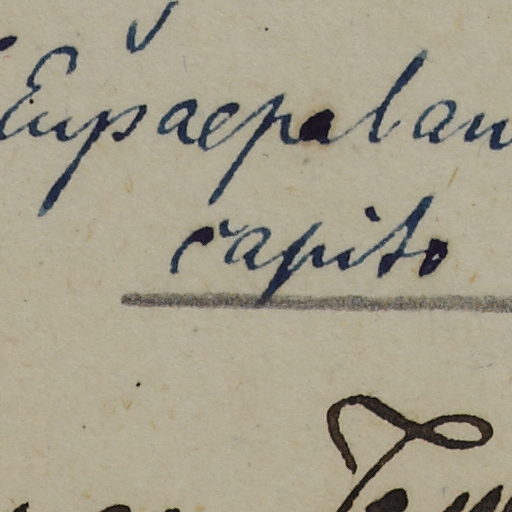 Eupaepalan
capito